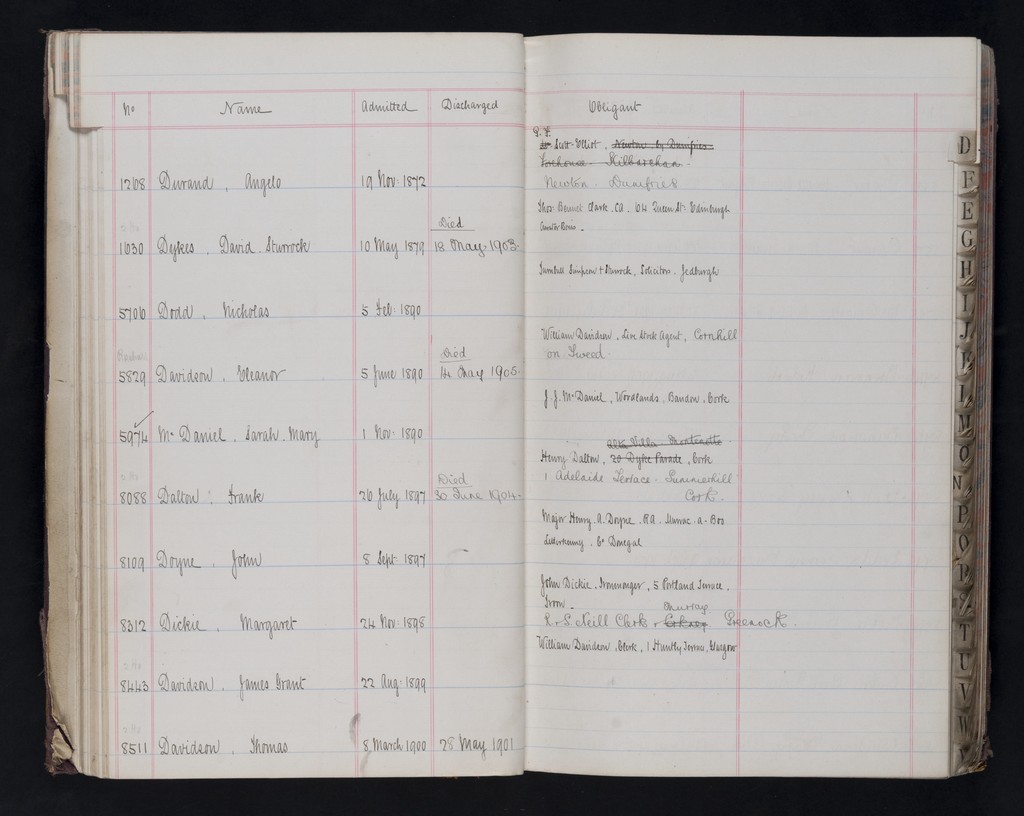 No Name Admitted Discharged Obligant
G. F.
Scott-Elliot, Newton by Dumfries
Forehouse Kilbarchan
1268 Durand, Angelo 19 Nov. 1872 Newton. Dumfries
Thos. Bennet Clark. CA. 64 Queen St. Edinburgh
Died
1630 Dykes, David Sturrock 10 May 1879 18 May 1903.
Turnbull Simpson & Sturrock, Solicitors, Jedburgh
5706 Dodd, Nicholas 5 Feb. 1890
William Davidson, Live Stock Agent, Cornhill
Died on Tweed.
5829 Davidson, Eleanor 5 June 1890 4 May 1905.
J. J. McDaniel, Woodlands, Bandon, Cork
5974 Mc Daniel, Sarah Mary 1 Nov. 1890
Alta Villa Montenotte
Henry Dalton, 20 Dyke Parade, Cork
Died 1 Adelaide Terrace - Summerhill
8088 Dalton, Frank 26 July 1897 30 June 1904. Cork.
Major Henry A. Doyne. R.A.
Letterkenny, Co Donegal
8109 Doyne, John 8 Sept. 1897
John Dickie, Ironmonger, 5 Portland Terrace,
Troon. Murray
8312 Dickie, Margaret 24 Nov. 1898 R & S Neill Clerk & Greenock.
William Davidson, Clerk, 1 Huntly Terrace, Glasgow
8443 Davidson, James Grant 22 Aug. 1899
8511 Davidson, Thomas 8 March 1900 28 May 1901
D
F
E
G
H
I
J
K
L
M
O
N
P
Q
R
T
U
V
W